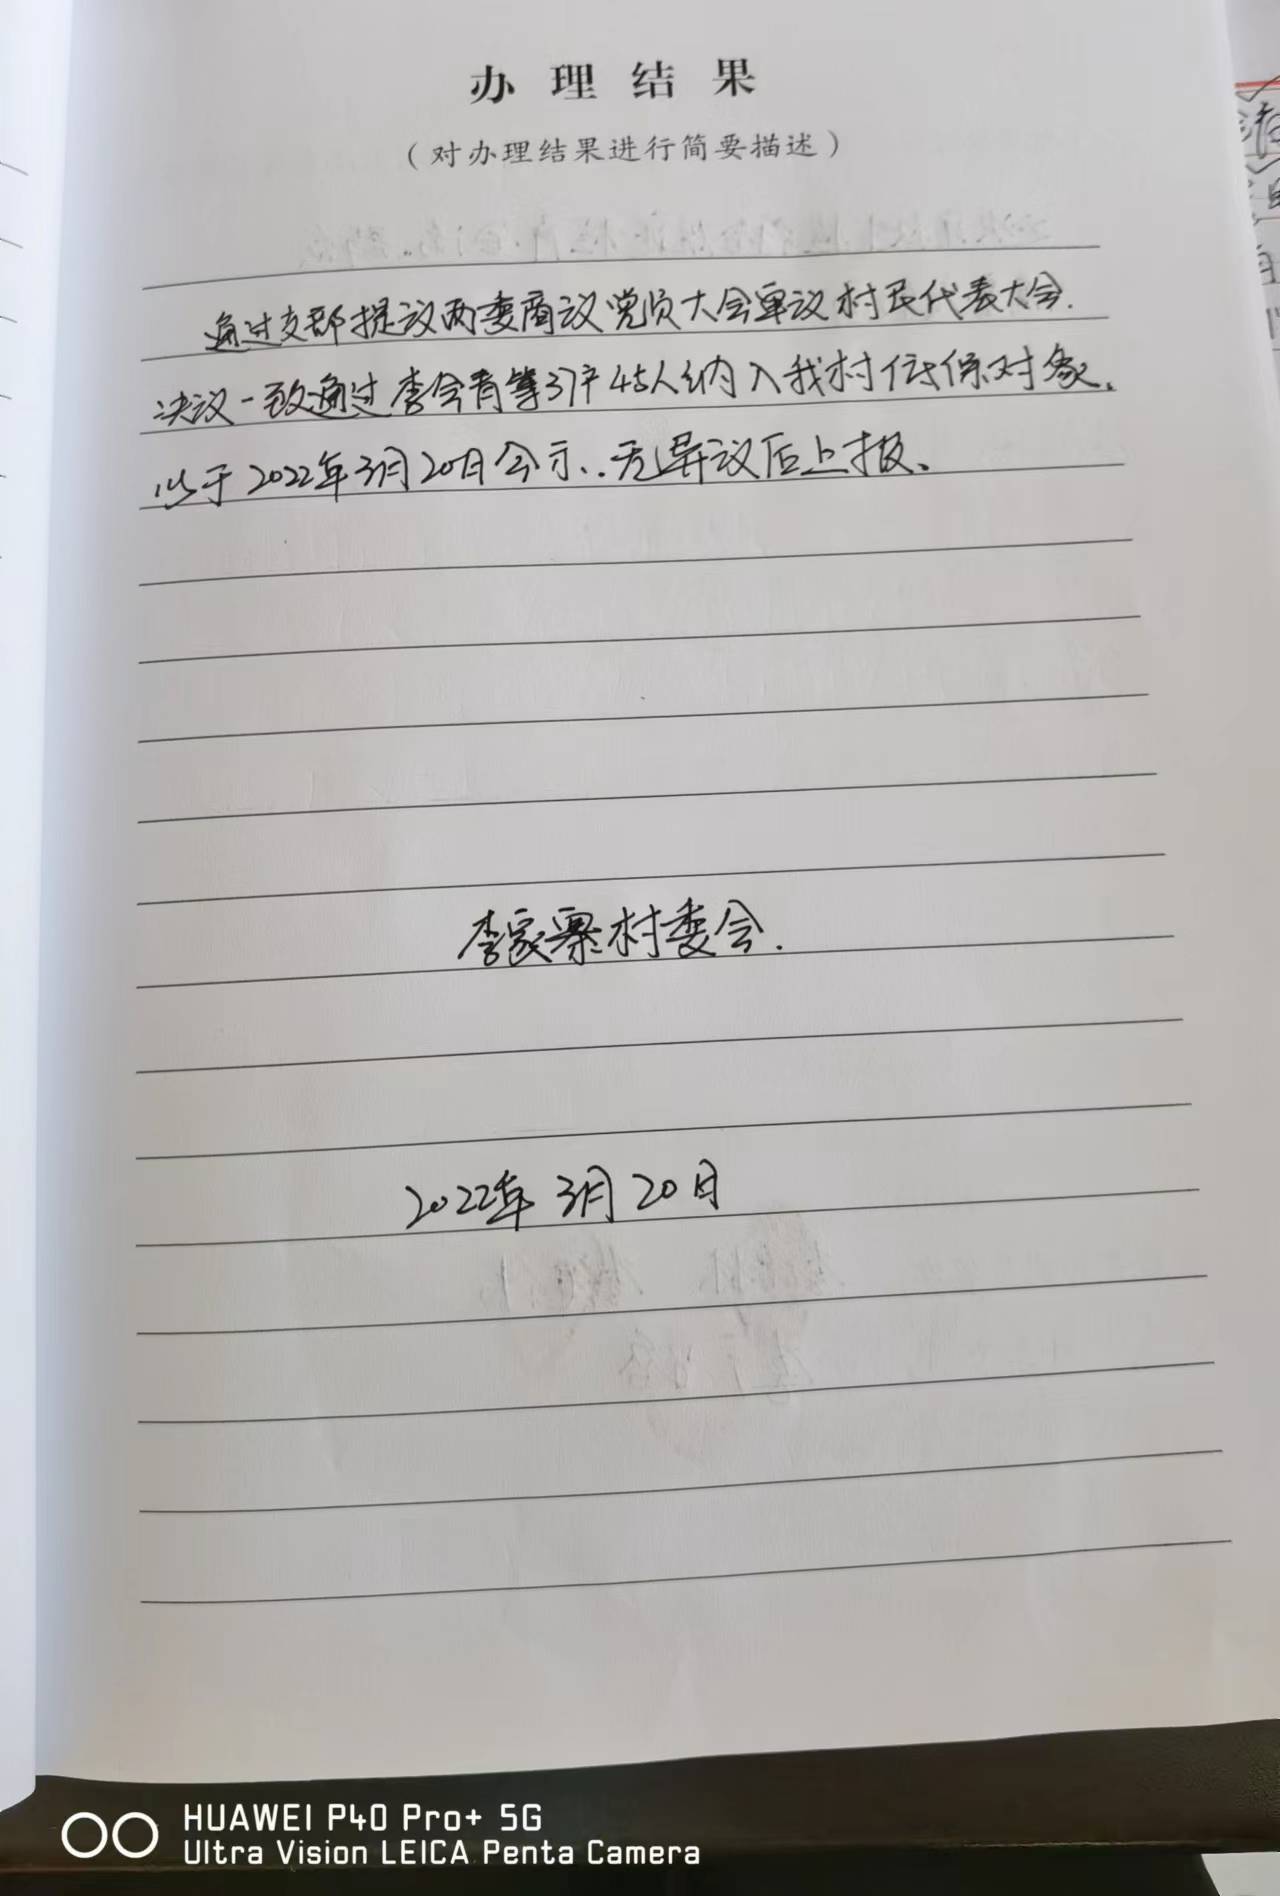 办理结果
（对办理结果进行简要描述）
通过支部提议两委商议党员大会审议村民代表大会.
决议一致通过李会青等37户45人纳入我村低保对象.
以于2022年3月20日公示..无异议后上报.
李家寨村委会.
2022年3月20日
HUAWEI P40 Pro+ 5G
Ultra Vision LEICA Penta Camera